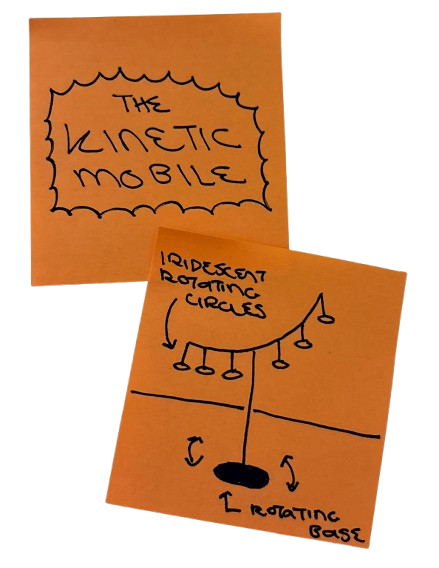 THE
KINETIC
MOBILE
IRIDESCENT
ROTATING
CIRCLES
ROTATING
BASE